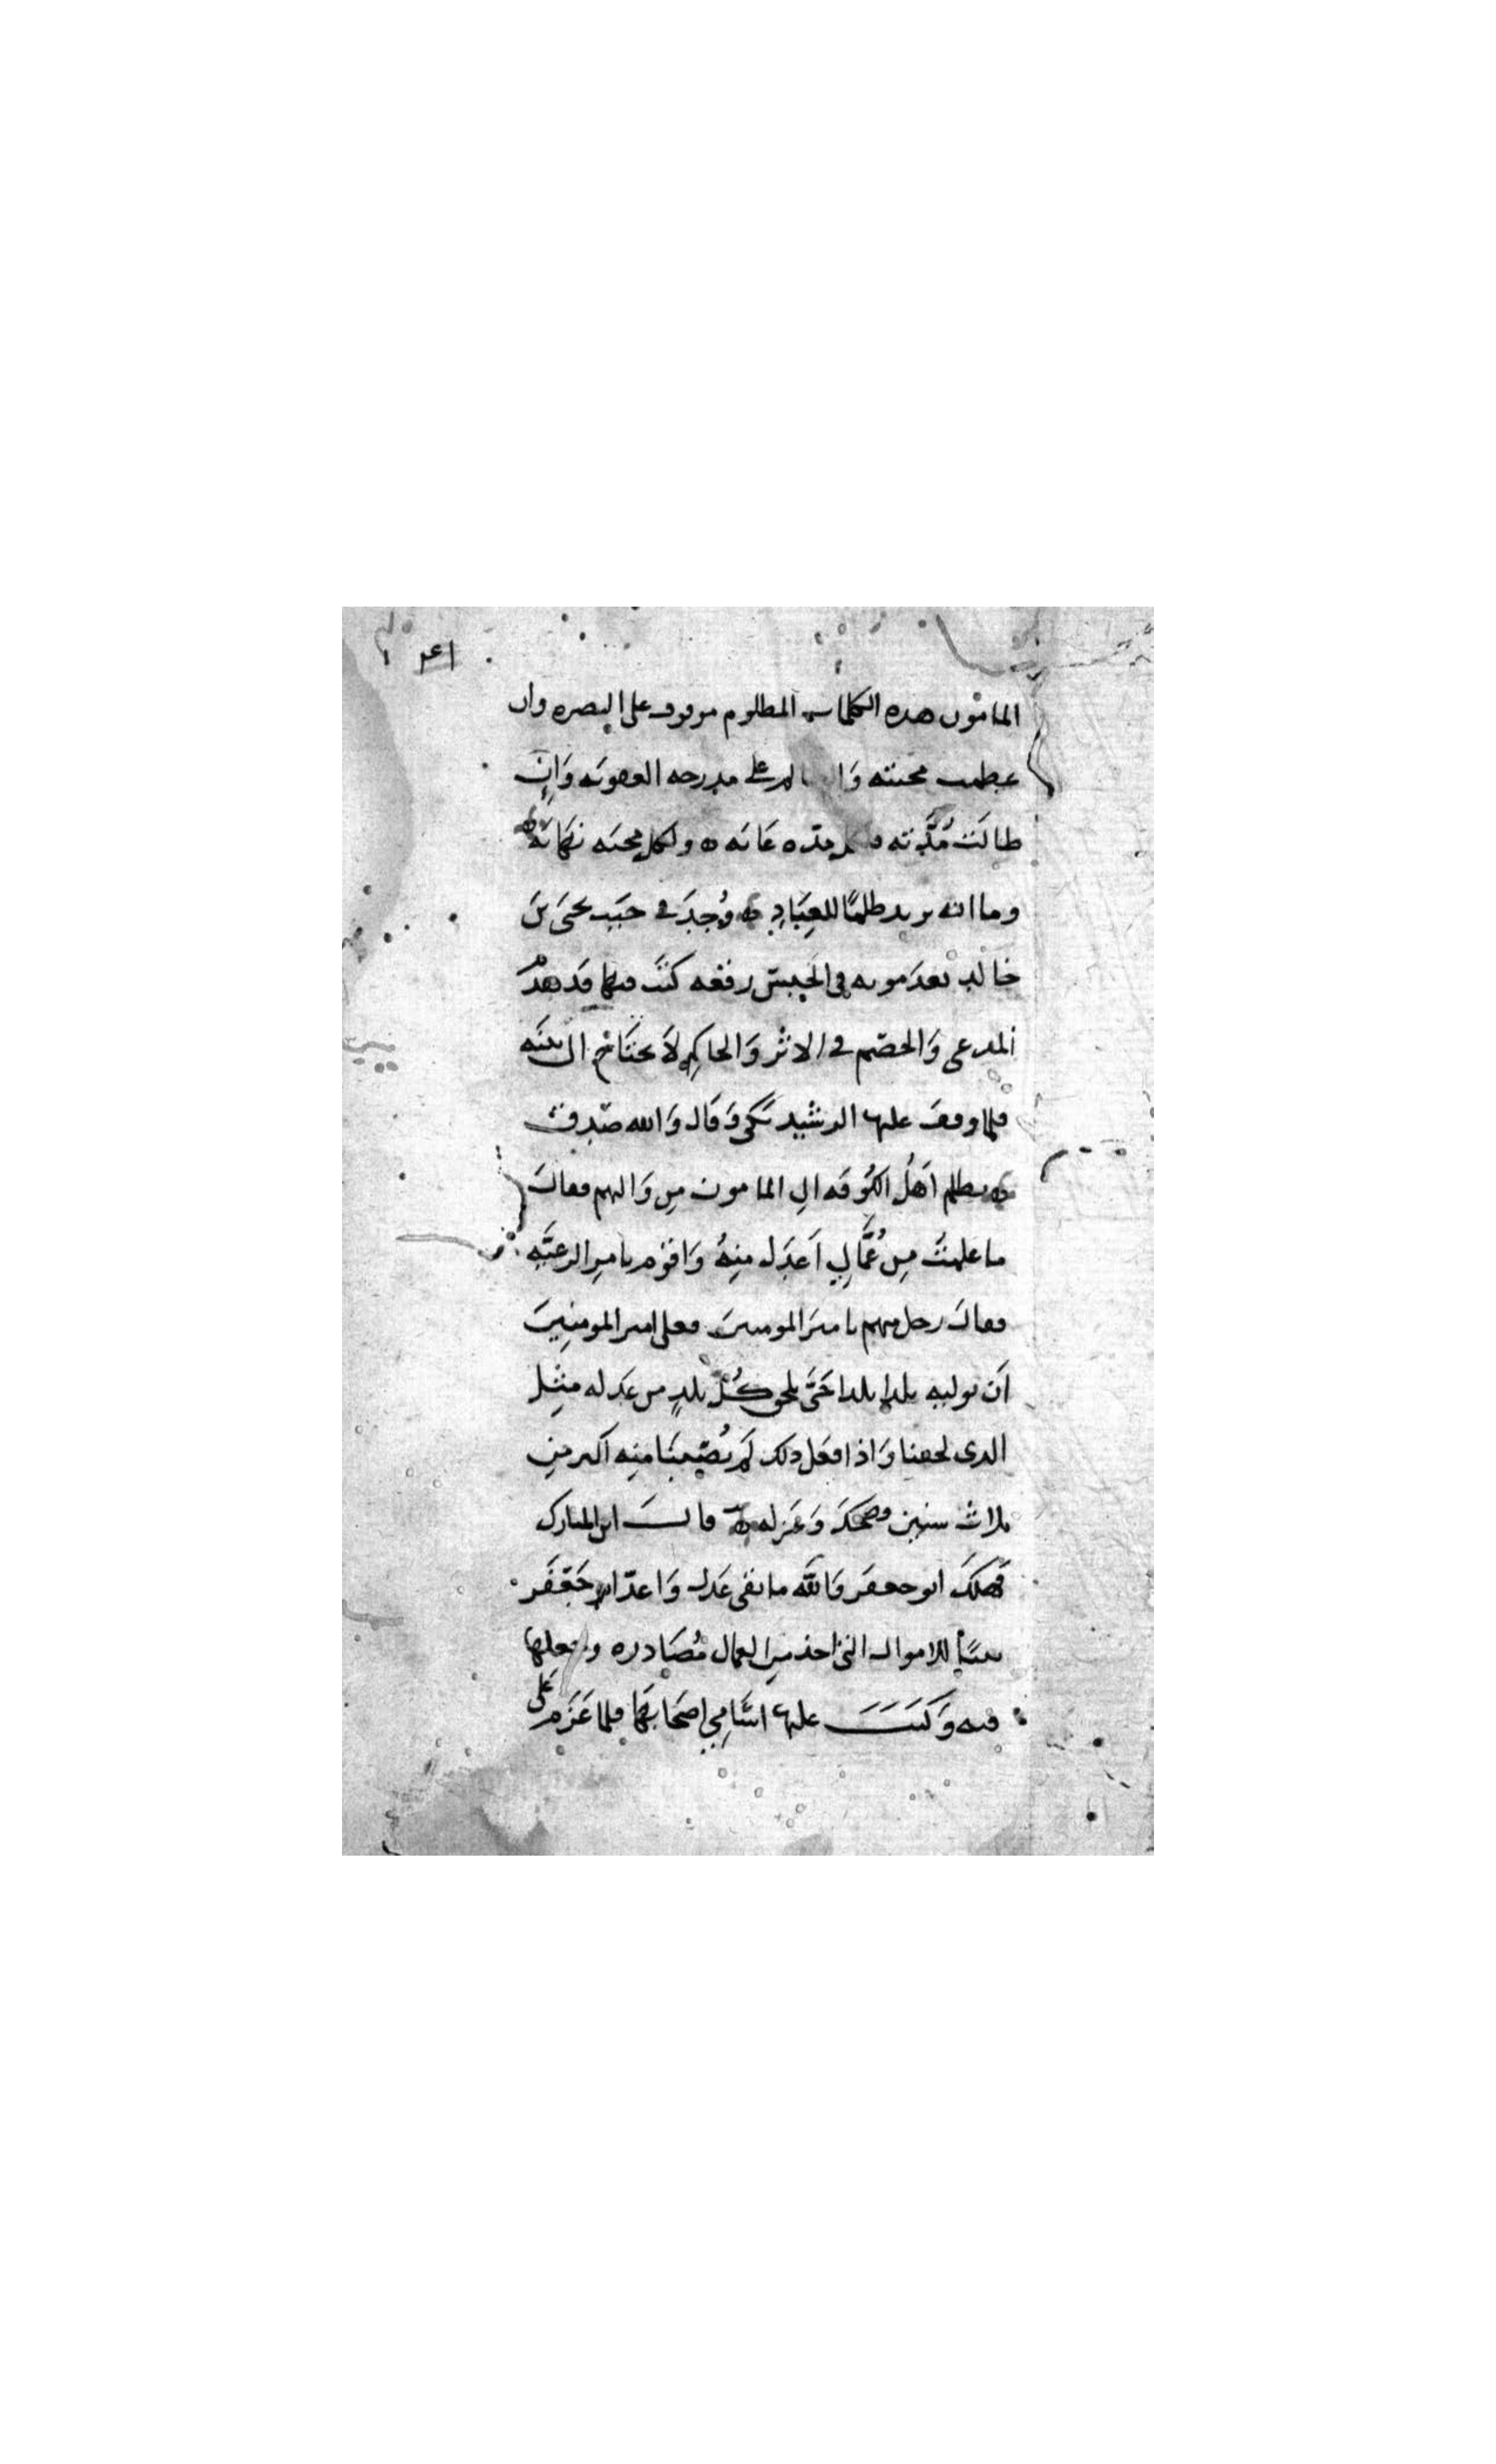 ٤١
المامون هذه الكلمات المظلوم موقوف على النصره وان
عظمت محنته وان على مدرجه العقوبه وَاِن
طالَت مُدَّته مدّه غَايَه ٥ ولكل محنَه نهَايَة
وما الله يريد ظلمًا للعِبَادِ ٥ وُجِدَ في جَيب يحيَى بن
خالد بعدَ موته في الحَبس رقعَه كتبَ فيها قَد
المدعى وَالخصم في الاثر وَالحاكِم لاَ يحتَاج الى بينَه
فلما وقفَ عليها الرشيد بَكى وَقَال وَالله صَدق
٥ تظلم اَهلُ الكُوفَه الى المامون مِن وَاليهم فقالَ
ما علمتُ مِن عُمَّالِي اَعدَل منِهُ وَاقوَم بامرِ الرعيَّهِ
فقالَ رجل منهم يا اميرَ المومنينَ فعلى امير المومنِينَ
اَن يوليه بلدا بلدا حَتَّى يلحق كُلَّ بلدٍ من عَدله مثِل
الذى لحقنا وَاذا فعَل ذلك لَم يُصِبنَا منِه اكثر مِن
ثلاث سنين فضحكَ وَعَزله ٥ قالَ ابن المبارك
فهلكَ ابو جعفر وَالله ما بقى عَدل وَاعدّ ابو جَعفَر
بيتًا للاموال التي اخذ مِن العمال مُصَادره وجعلها
فيه وَكتَبَ عليها اسَّامِي اصحَابهَا فلما عَزَم على